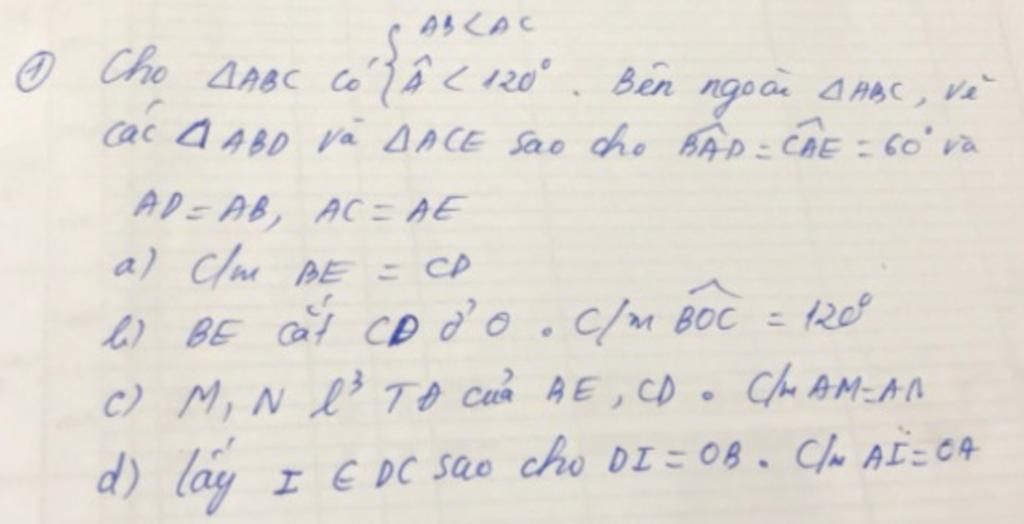 AB < AC
① Cho ΔABC có { Â < 120°. Bên ngoài ΔABC, vẽ
các ΔABD và ΔACE sao cho BÂD = CÂE = 60° và
AD = AB, AC = AE
a) C/m BE = CD
b) BE cắt CD ở O. C/m BOC = 120°
c) M, N l³ TĐ của BE, CD. C/m AM = AN
d) lấy I ∈ DC sao cho DI = OB. C/m AI = OA